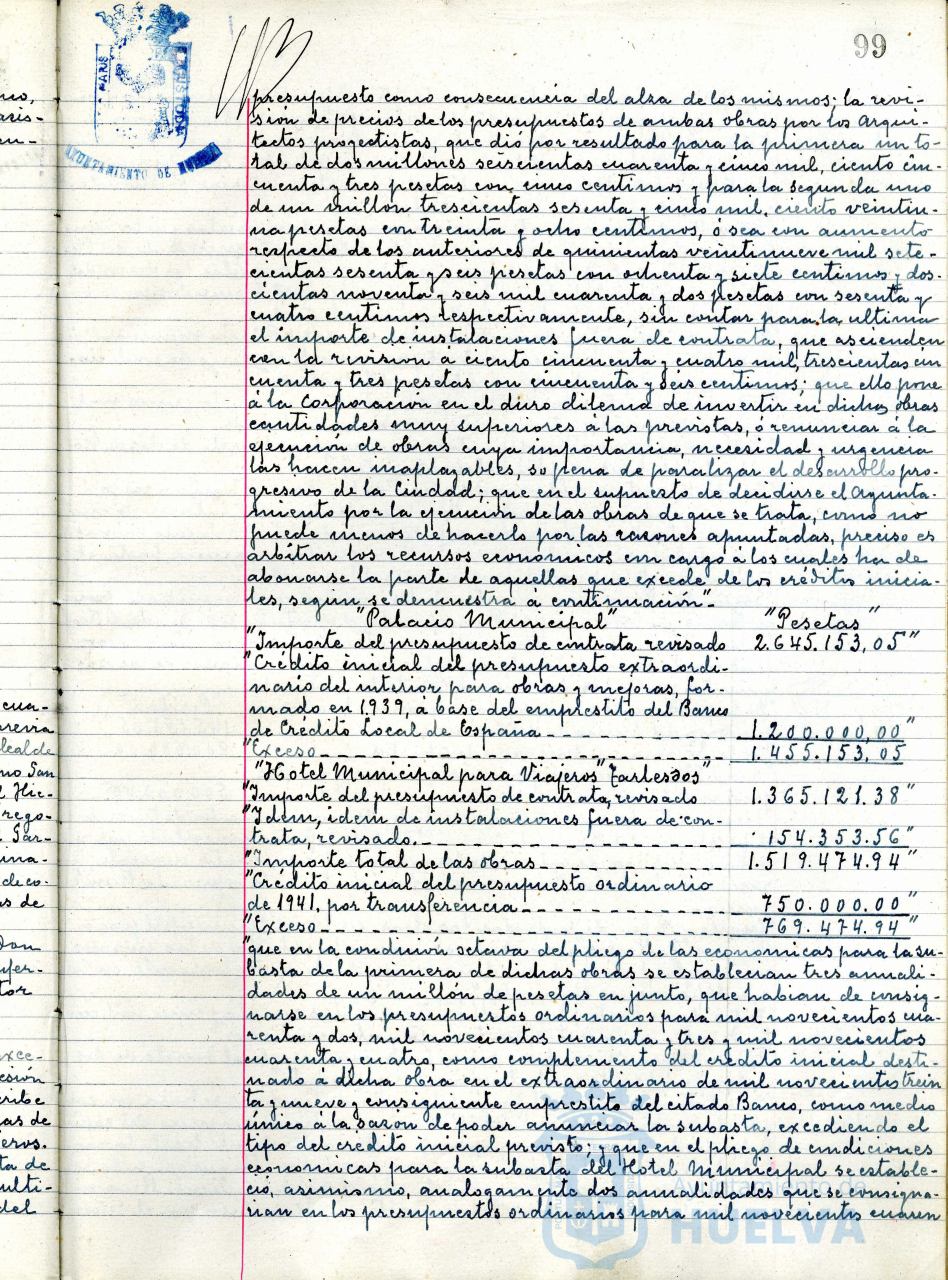 99
presupuesto como consecuencia del alza de los mismos; la revi-
sión de precios de los presupuestos de ambas obras por los Arqui-
tectos proyectistas, que dió por resultado para la primera un to-
tal de dos millones seiscientas cuarenta y cinco mil, ciento cin-
cuenta y tres pesetas con cinco centimos y para la segunda uno
de un millón trescientas sesenta y cinco mil, ciento veintiu-
na pesetas con treinta y ocho centimos, ó sea con aumento
respecto de los anteriores de quinientas veintinueve mil sete-
cientas sesenta y seis pesetas con ochenta y siete centimos y dos-
cientas noventa y seis mil cuarenta y dos pesetas con sesenta y
cuatro centimos respectivamente, sin contar para la ultima
el importe de instalaciones fuera de contrata, que ascienden
con la revisión á ciento cincuenta y cuatro mil, trescientas cin
cuenta y tres pesetas con cincuenta y seis centimos; que ello pone
á la Corporación en el duro dilema de invertir en dichas obras
cantidades muy superiores á las previstas, ó renunciar á la
ejecución de obras cuya importancia, necesidad y urgencia
las hacen inaplazables, so pena de paralizar el desarrollo pro-
gresivo de la Ciudad; que en el supuesto de decidirse el Ayunta-
miento por la ejecución de las obras de que se trata, como no
puede menos de hacerlo por las razones apuntadas, preciso es
arbitrar los recursos económicos con cargo á los cuales ha de
abonarse la parte de aquellas que excede de los créditos inicia-
les, segun se demuestra á continuación".
"Palacio Municipal" "Pesetas"
"Importe del presupuesto de contrata revisado 2.645.153,05"
"Crédito inicial del presupuesto extraordi-
nario del interior para obras y mejoras, for-
mado en 1.939, á base del emprestito del Banco
de Crédito Local de España 1.200.000,00"
"Exceso 1.455.153,05
"Hotel Municipal para Viajeros"
"Importe del presupuesto de contrata, revisado 1.365.121.38"
"Idem, idem de instalaciones fuera de con-
trata, revisado. 154.353.56"
"Importe total de las obras 1.519.474.94"
"Crédito inicial del presupuesto ordinario
de 1941, por transferencia 750.000.00"
"Exceso 769.474.94"
"que en la condición octava del pliego de las economicas para la su-
basta de la primera de dichas obras se establecian tres anuali-
dades de un millón de pesetas en junto, que habian de consig-
narse en los presupuestos ordinarios para mil novecientos cua-
renta y dos, mil novecientos cuarenta y tres y mil novecientos
cuarenta y cuatro, como complemento del crédito inicial desti-
nado á dicha obra en el extraordinario de mil novecientos trein
ta y nueve y consiguiente emprestito del citado Banco, como medio
único á la sazón de poder anunciar la subasta, excediendo el
tipo del credito inicial previsto; y que en el pliego de condiciones
economicas para la subasta del Hotel Municipal se estable-
ció, asimismo, analogamente dos anualidades que se consigna-
rian en los presupuestos ordinarios para mil novecientos cuaren
AYUNTAMIENTO DE HUELVA
Ayuntamiento de
HUELVA